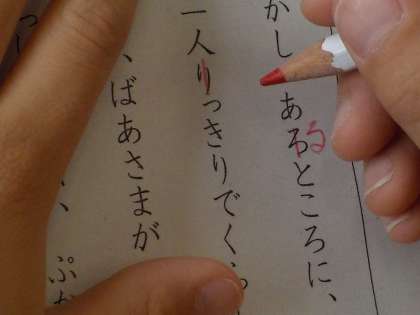 かし あろところに、
る
一人りっきりでく
、ばあさまが
、ぷ